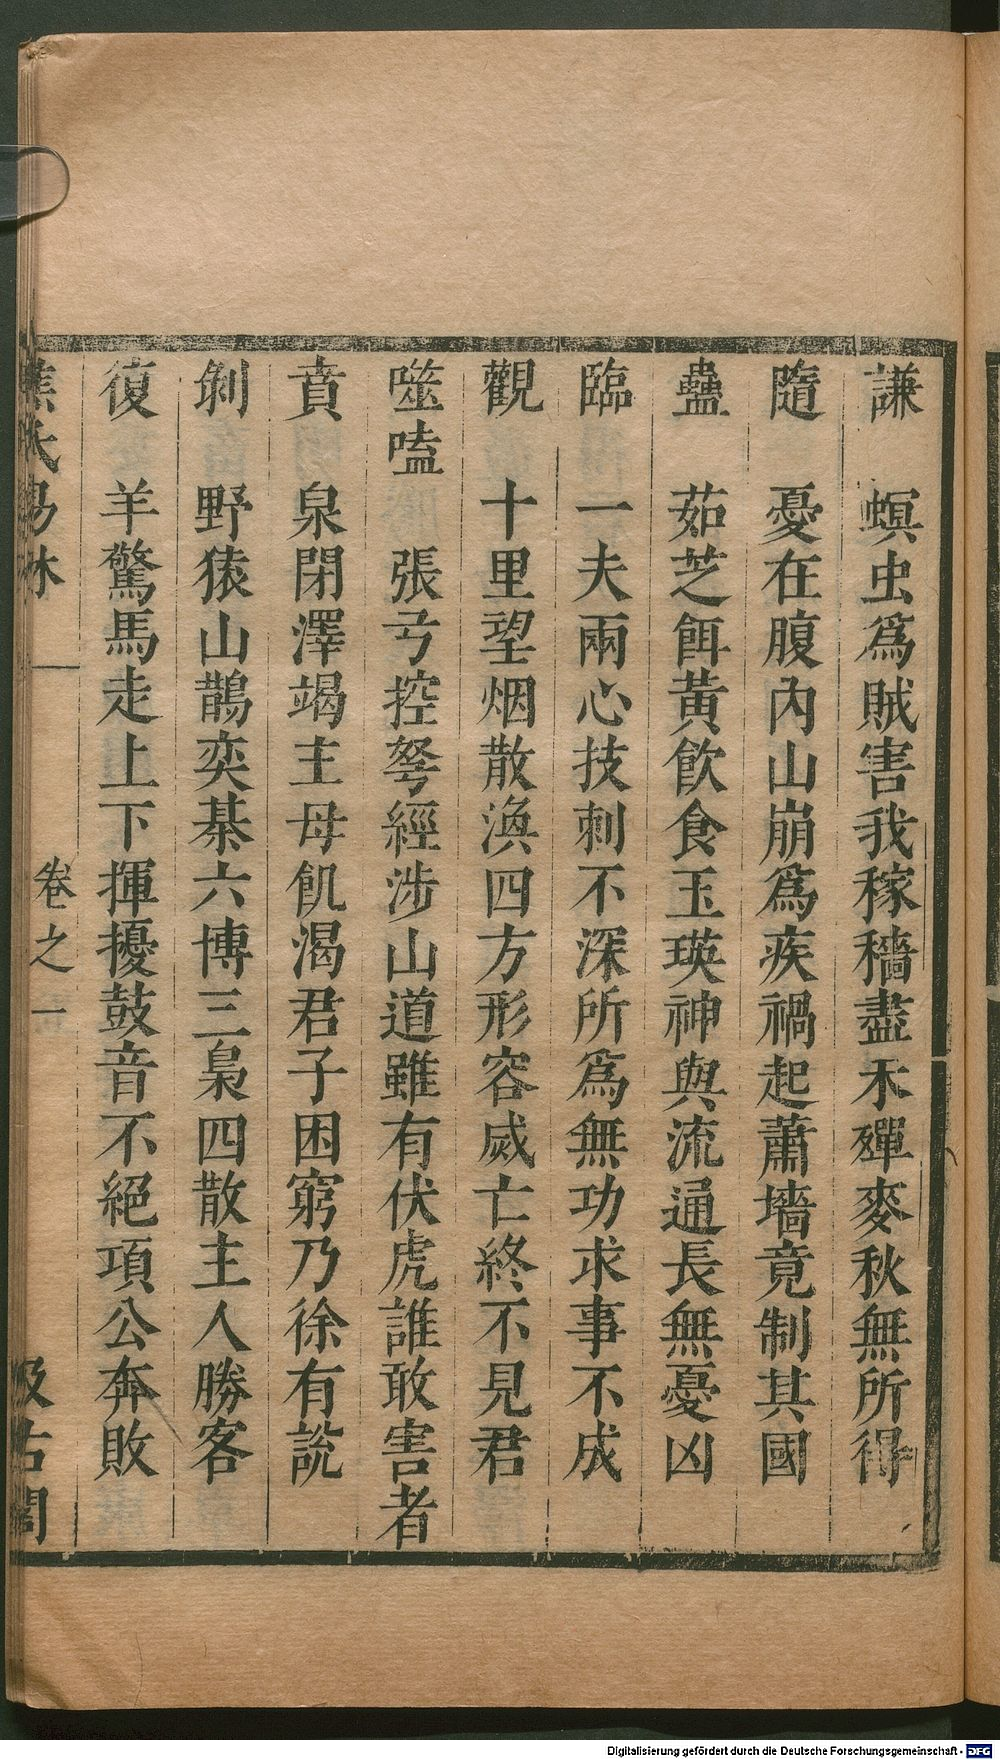 謙 螟虫爲賊害我稼穡盡禾殫麥秋無所得
隨 憂在腹內山崩爲疾禍起蕭墻竟制其國
蠱 茹芝餌黃飲食玉瑛神與流通長無憂凶
臨 一夫兩心技刺不深所爲無功求事不成
觀 十里望烟散渙四方形容滅亡終不見君
噬嗑 張弓控弩經涉山道雖有伏虎誰敢害者
賁 泉閉澤竭主母飢渴君子困窮乃徐有說
剝 野猿山鵲奕棊六博三梟四散主人勝客
復 羊驚馬走上下揮擾鼓音不絕項公奔敗
焦氏易林 卷之一 汲古閣
Digitalisierung gefördert durch die Deutsche Forschungsgemeinschaft - DFG